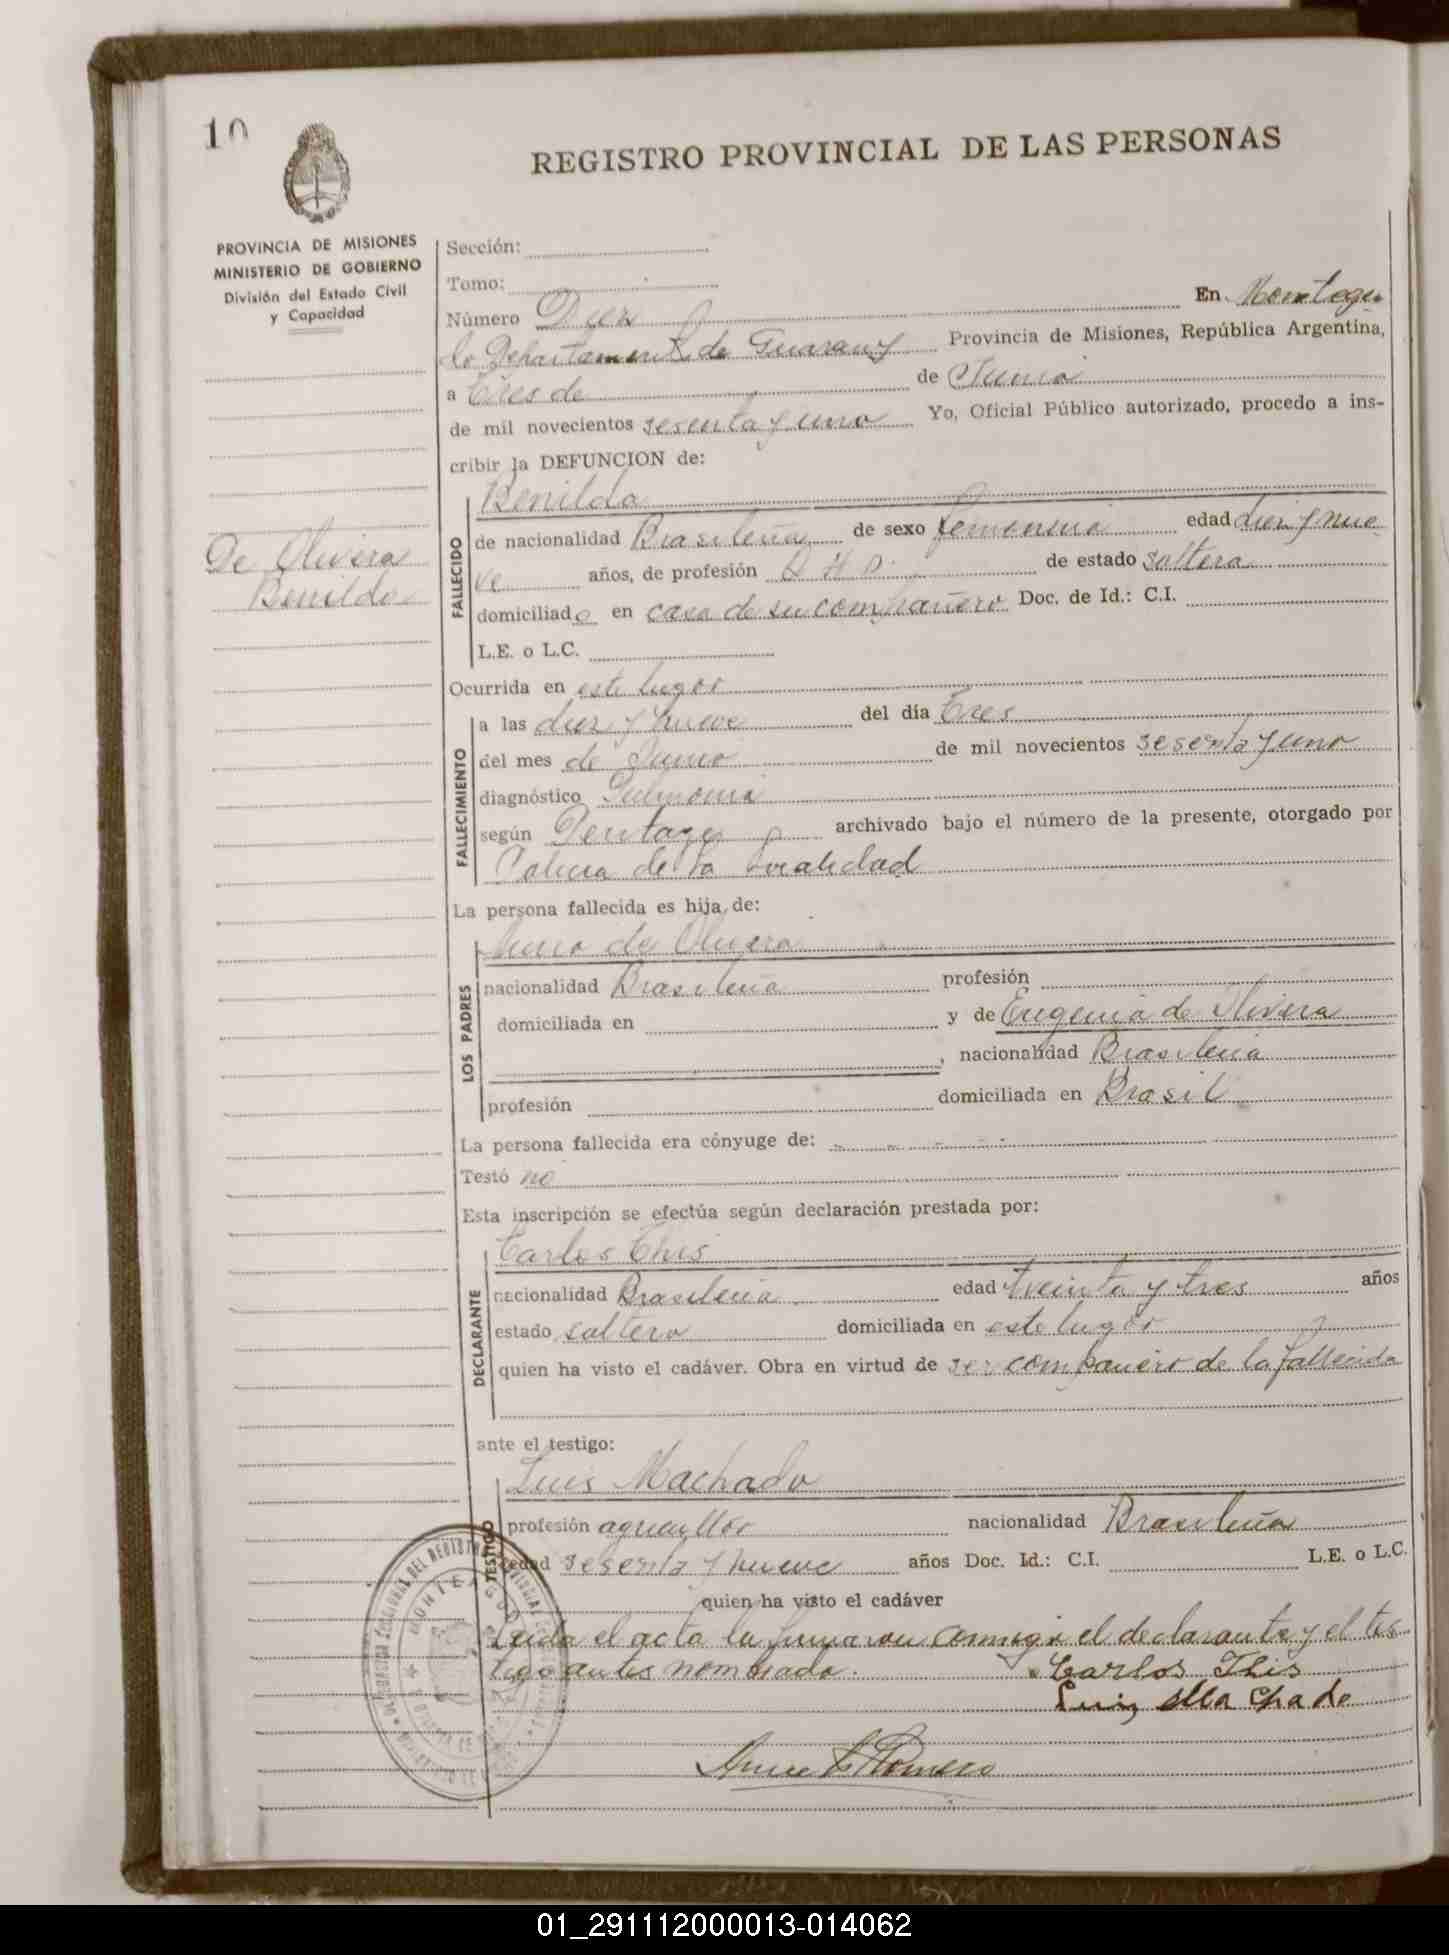 10
REGISTRO PROVINCIAL DE LAS PERSONAS
PROVINCIA DE MISIONES
MINISTERIO DE GOBIERNO
División del Estado Civil
y Capacidad
De Olivera
Benilda
Sección:
Tomo:
Número Diez En Monteagu
lo Departamento de Guarany Provincia de Misiones, República Argentina,
a Tres de de Junio
de mil novecientos sesenta y uno Yo, Oficial Público autorizado, procedo a ins-
cribir la DEFUNCION de:
FALLECIDO
Benilda
de nacionalidad Brasileña de sexo femenino edad diez y nue
ve años, de profesión Q H D. de estado soltera
domiciliado en casa de su compañero Doc. de Id.: C.I.
L.E. o L.C.
Ocurrida en este lugar
FALLECIMIENTO
a las diez y nueve del día Tres
del mes de Junio de mil novecientos sesenta y uno
diagnóstico Pulmonia
según archivado bajo el número de la presente, otorgado por
Policia de la localidad
La persona fallecida es hija de:
LOS PADRES
de Olivera
nacionalidad Brasileña profesión
domiciliada en y de Eugenia de Olivera
, nacionalidad Brasileña
profesión domiciliada en Brasil
La persona fallecida era cónyuge de:
Testó no
Esta inscripción se efectúa según declaración prestada por:
DECLARANTE
Carlos This
nacionalidad Brasileña edad treinta y tres años
estado soltero domiciliada en este lugar
quien ha visto el cadáver. Obra en virtud de ser compañero de la fallecida
ante el testigo:
TESTIGO
Luis Machado
profesión agricultor nacionalidad Brasileña
edad sesenta y nueve años Doc. Id.: C.I. L.E. o L.C.
quien ha visto el cadáver
Leida el acta la firmaron conmigo el declarante y el tes
tigo antes nombrado. Carlos This
Luiz Machado
Romero
01_291112000013-014062